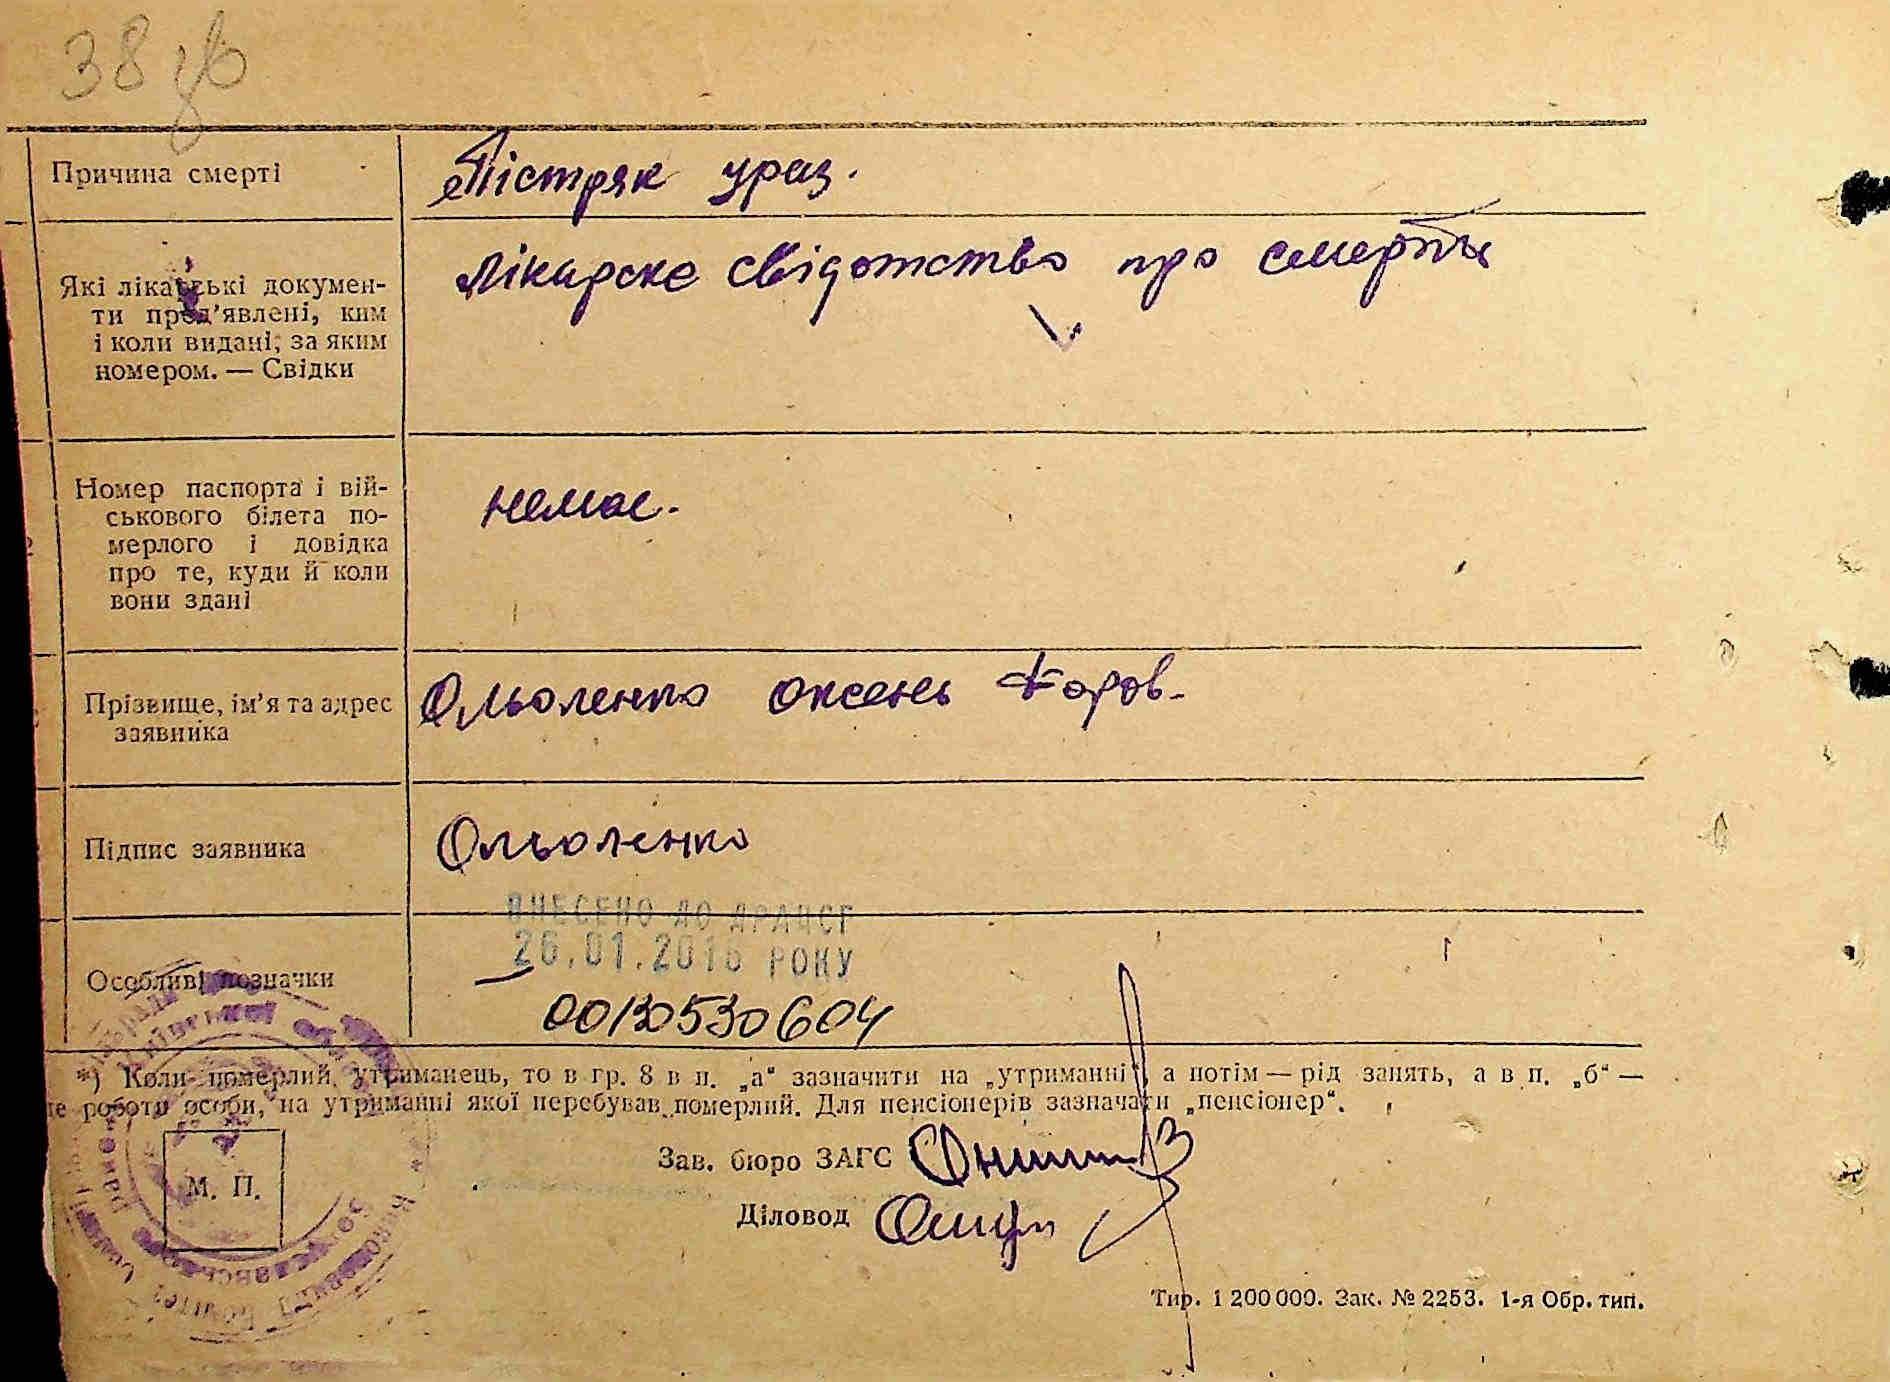 38
Причина смерті
Пістряк ураз.
Які лікарські докумен-
ти пред'явлені, ким
і коли видані, за яким
номером. — Свідки
Лікарске свідотство про смерть
Номер паспорта і вій-
ськового білета по-
мерлого і довідка
про те, куди й коли
вони здані
немає.
Прізвище, ім'я та адрес
заявника
Омьоленко Оксень
Підпис заявника
Омьоленко
ВНЕСЕНО ДО ДРАЦСГ
26.01.2016 РОКУ
Особливі позначки
00130530604
*) Коли померлий утриманець, то в гр. 8 в п. „а“ зазначити на „утриманні“, а потім — рід занять, а в п. „б“ —
це роботи особи, на утриманні якої перебував померлий. Для пенсіонерів зазначати „пенсіонер“.
М. П.
Зав. бюро ЗАГС
Діловод
Тир. 1 200 000. Зак. № 2253. 1-я Обр. тип.